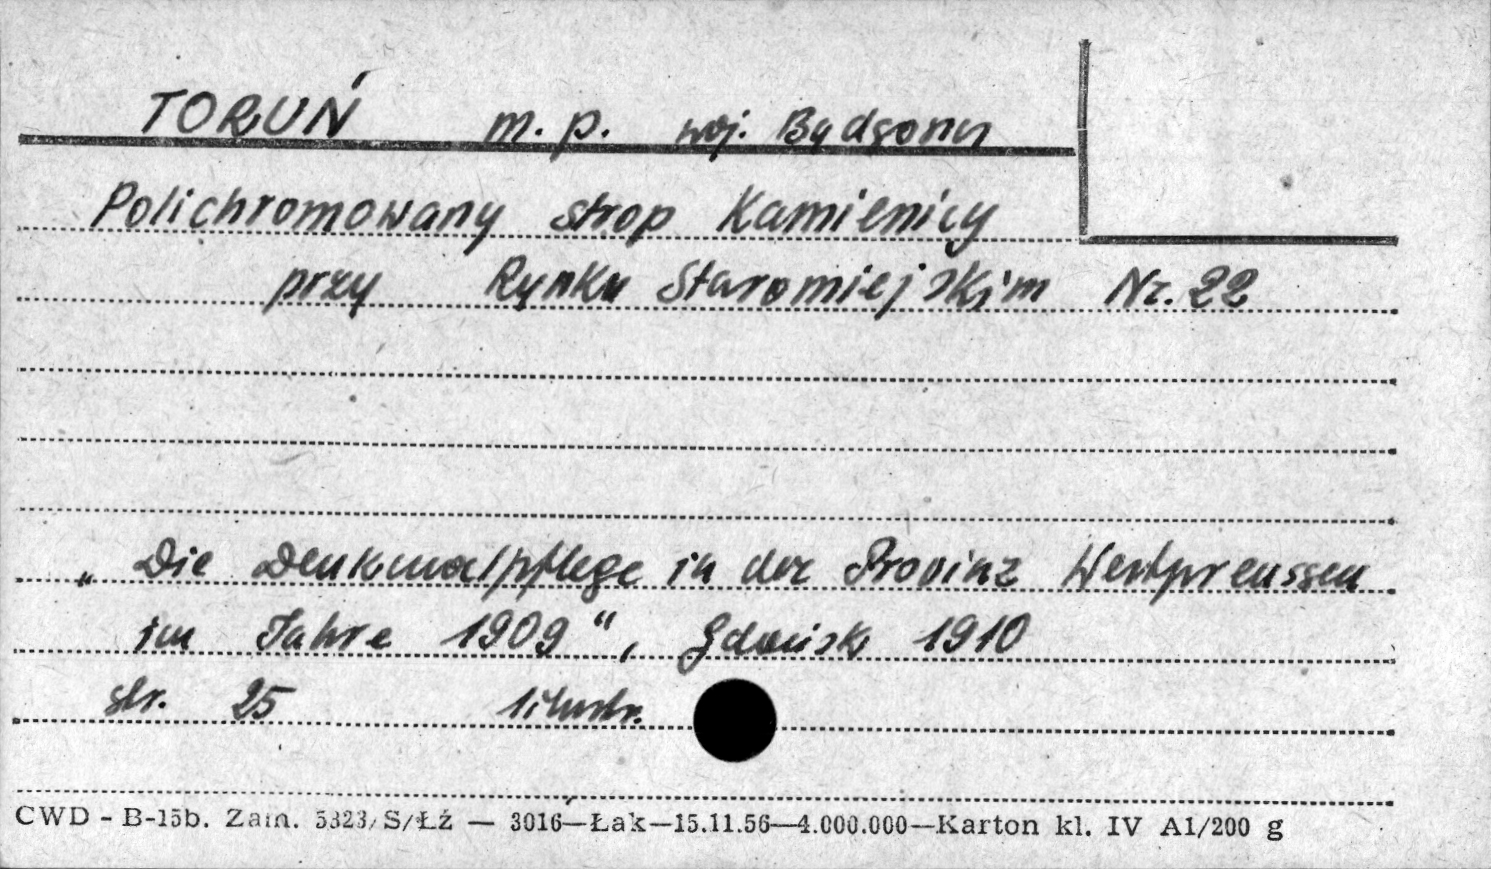 TORUŃ m. p. woj. Bydgoszcz
Polichromowany strop Kamienicy
przy Rynku Staromiejskim Nr. 22
„Die Denkmalpflege in der Provinz Westpreussen
im Jahre 1909“, Gdańsk 1910
str. 25 1 ilustr.
CWD - B-15b. Zam. 5323/S/Łź — 3016—Łak—15.11.56—4.000.000—Karton kl. IV A1/200 g